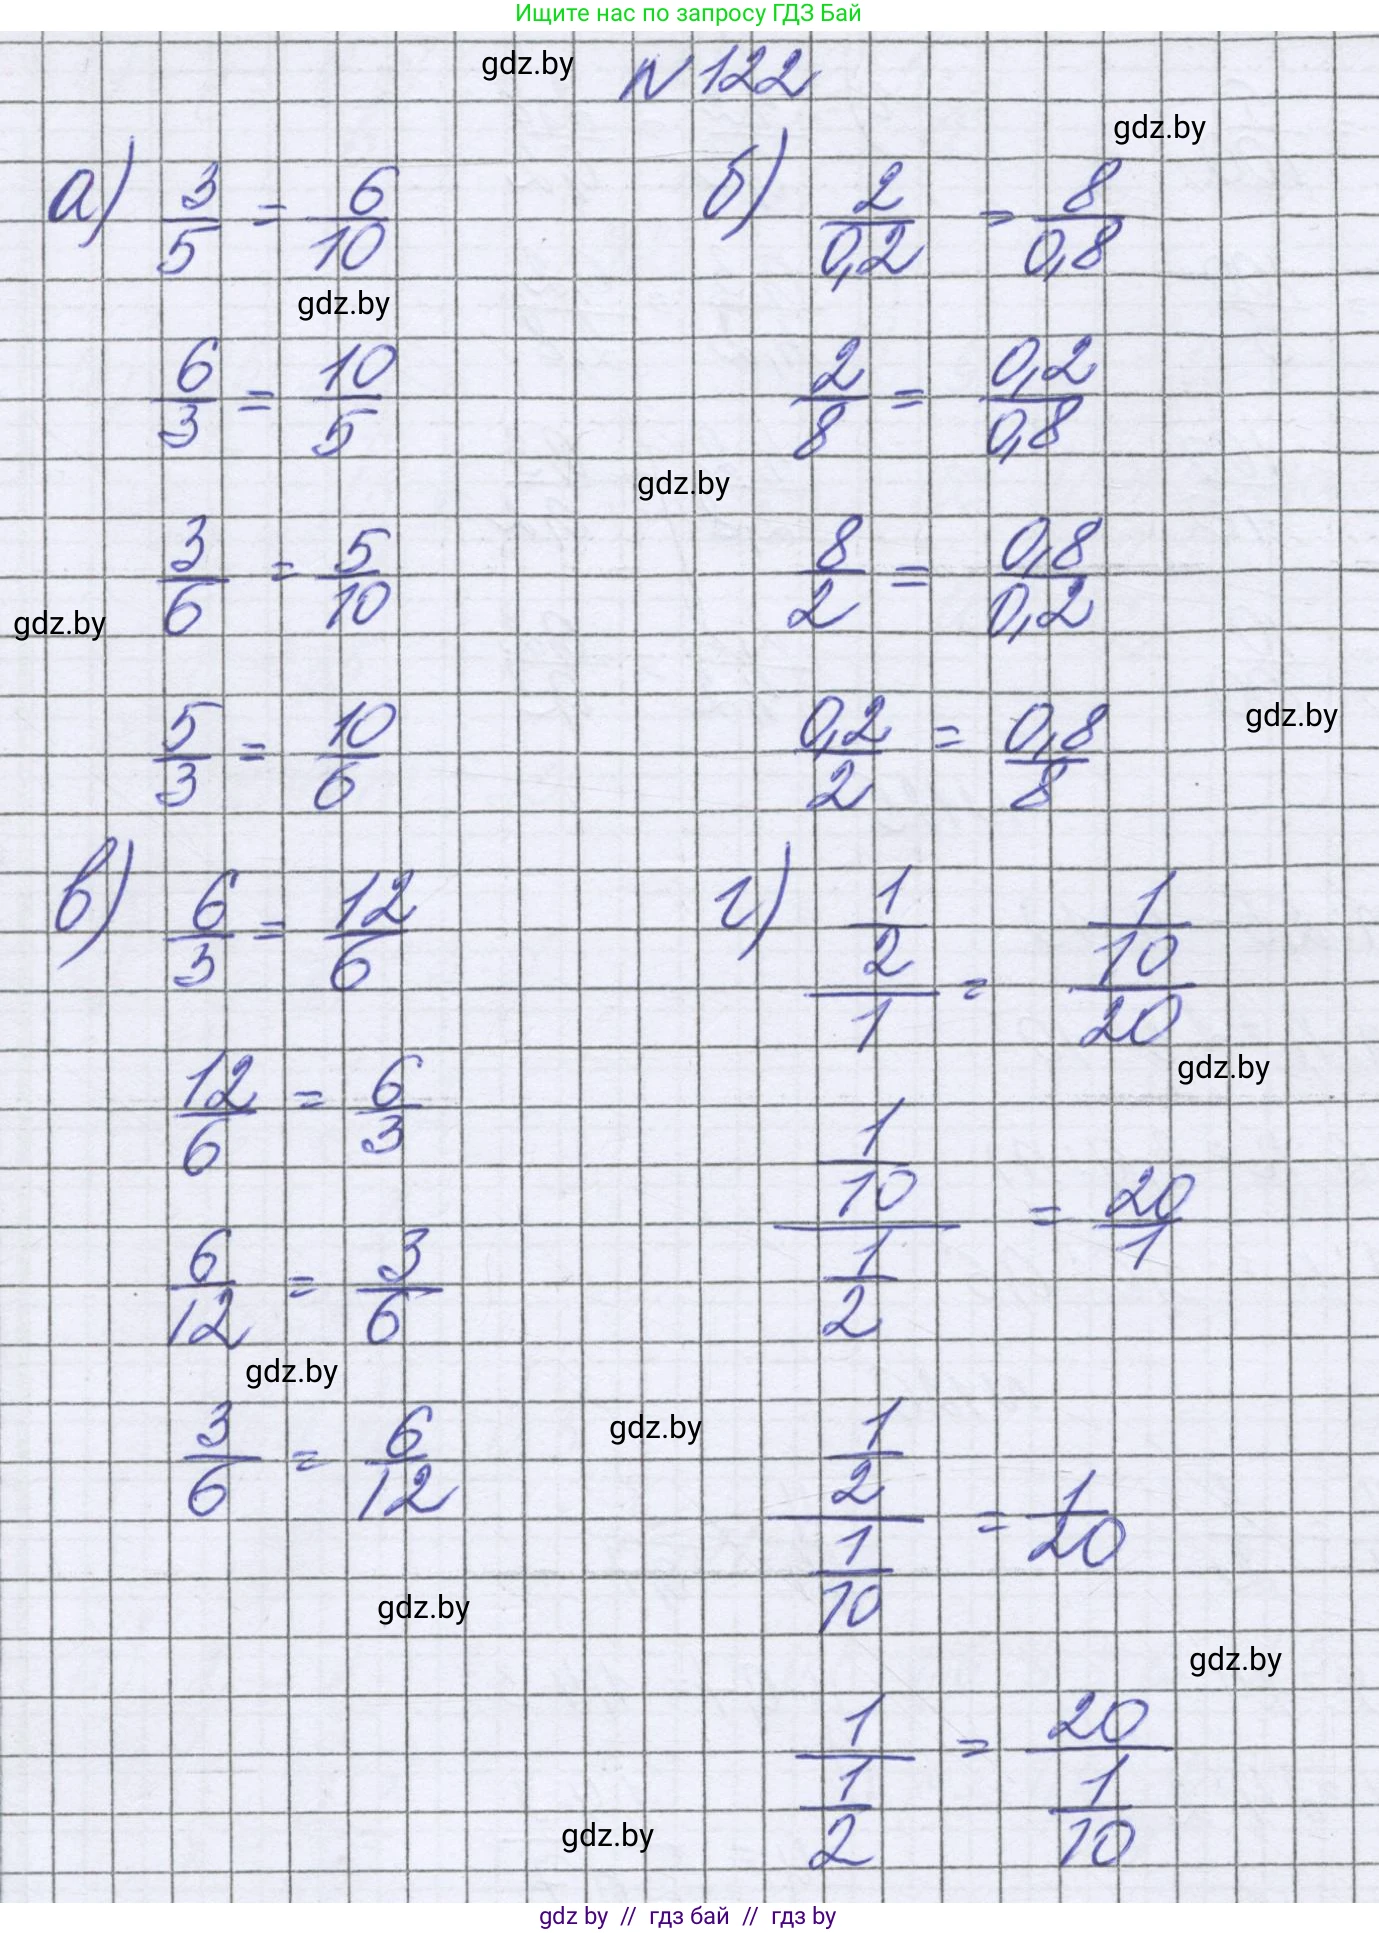 Ищите нас по запросу ГДЗ Бай
gdz.by
N 122
gdz.by
а) 3/5 = 6/10
б) 2/0,2 = 8/0,8
gdz.by
6/3 = 10/5
2/8 = 0,2/0,8
gdz.by
3/6 = 5/10
8/2 = 0,8/0,2
gdz.by
5/3 = 10/6
0,2/2 = 0,8/8
gdz.by
в) 6/3 = 12/6
г) (1/2)/1 = (1/10)/20
gdz.by
12/6 = 6/3
(1/10)/(1/2) = 20/1
6/12 = 3/6
gdz.by
gdz.by
3/6 = 6/12
(1/2)/(1/10) = 1/20
gdz.by
gdz.by
1/(1/2) = 20/(1/10)
gdz.by
gdz by // гдз бай // гдз by